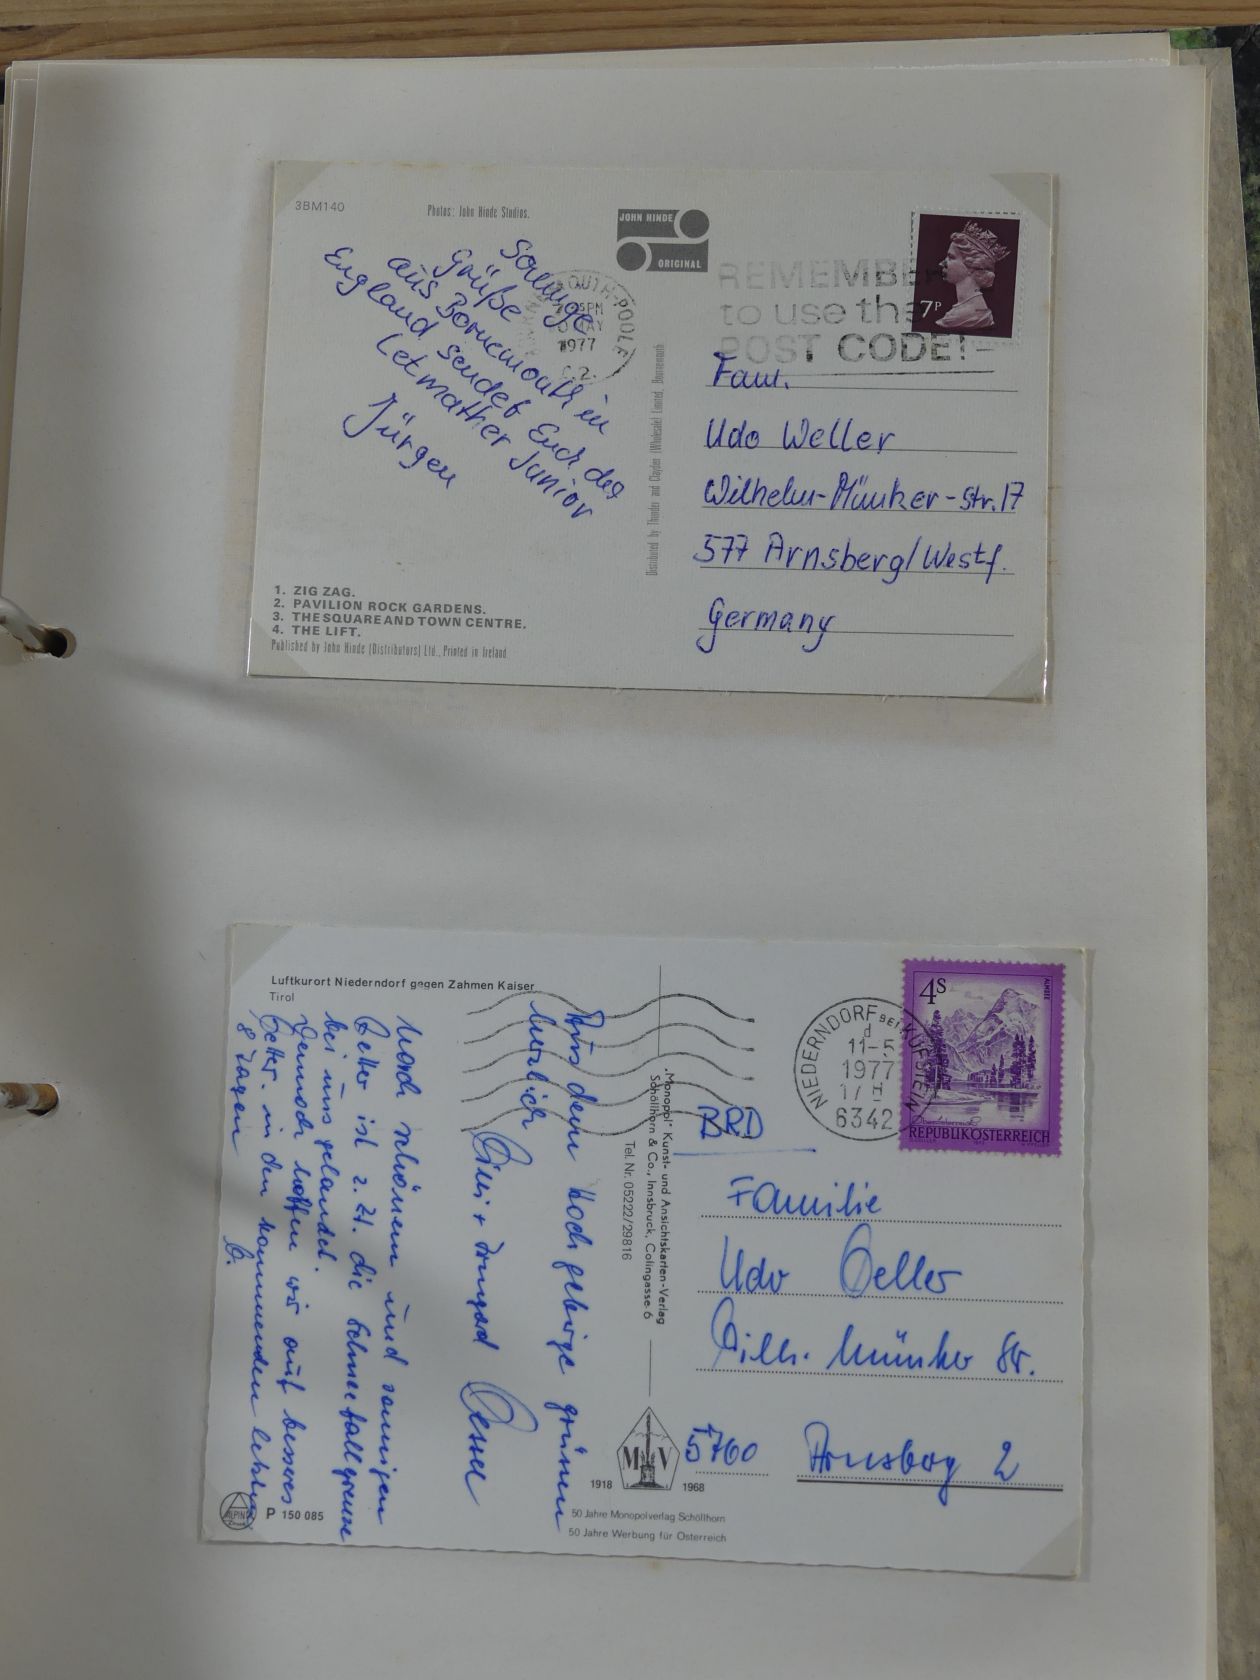 3BM140
Photos: John Hinde Studios.
JOHN HINDE
ORIGINAL
Sonnige
Grüße
aus Bornemouth in
England sendet Euch der
Letmather Junior
Jürgen
OUTH-POOLE
PM
MAY
1977
REMEMBE
to use the
POST CODE!
7P
Fam.
Udo Weller
Wilhelm-Münker-Str. 17
577 Arnsberg/Westf.
Germany
Distributed by Thunder and Clayden (Wholesale) Limited, Bournemouth
1. ZIG ZAG.
2. PAVILION ROCK GARDENS.
3. THE SQUARE AND TOWN CENTRE.
4. THE LIFT.
Published by John Hinde (Distributors) Ltd., Printed in Ireland
Luftkurort Niederndorf gegen Zahmen Kaiser
Tirol
Aus dem Hochgebirge grüssen
herzlich
Nach schönem und sonnigen
Wetter ist z. Zt. die Schneefallgrenze
bei uns gelandet.
Dennoch hoffen wir auf besseres
Wetter in den kommenden letzten
8 Tagen
„Monopol" Kunst- und Ansichtskarten-Verlag
Schöllhorn & Co., Innsbruck, Colingasse 6
Tel. Nr. 05222/29816
NIEDERNDORF BEI KUFSTEIN
d
11-5
1977
17
6342
4S
ALMSEE
REPUBLIK ÖSTERREICH
BRD
Familie
Udo Weller
Wilh. Münker Str.
5760 Arnsberg 2
M V
1918 1968
50 Jahre Monopolverlag Schöllhorn
50 Jahre Werbung für Österreich
ALPIN
P 150 085